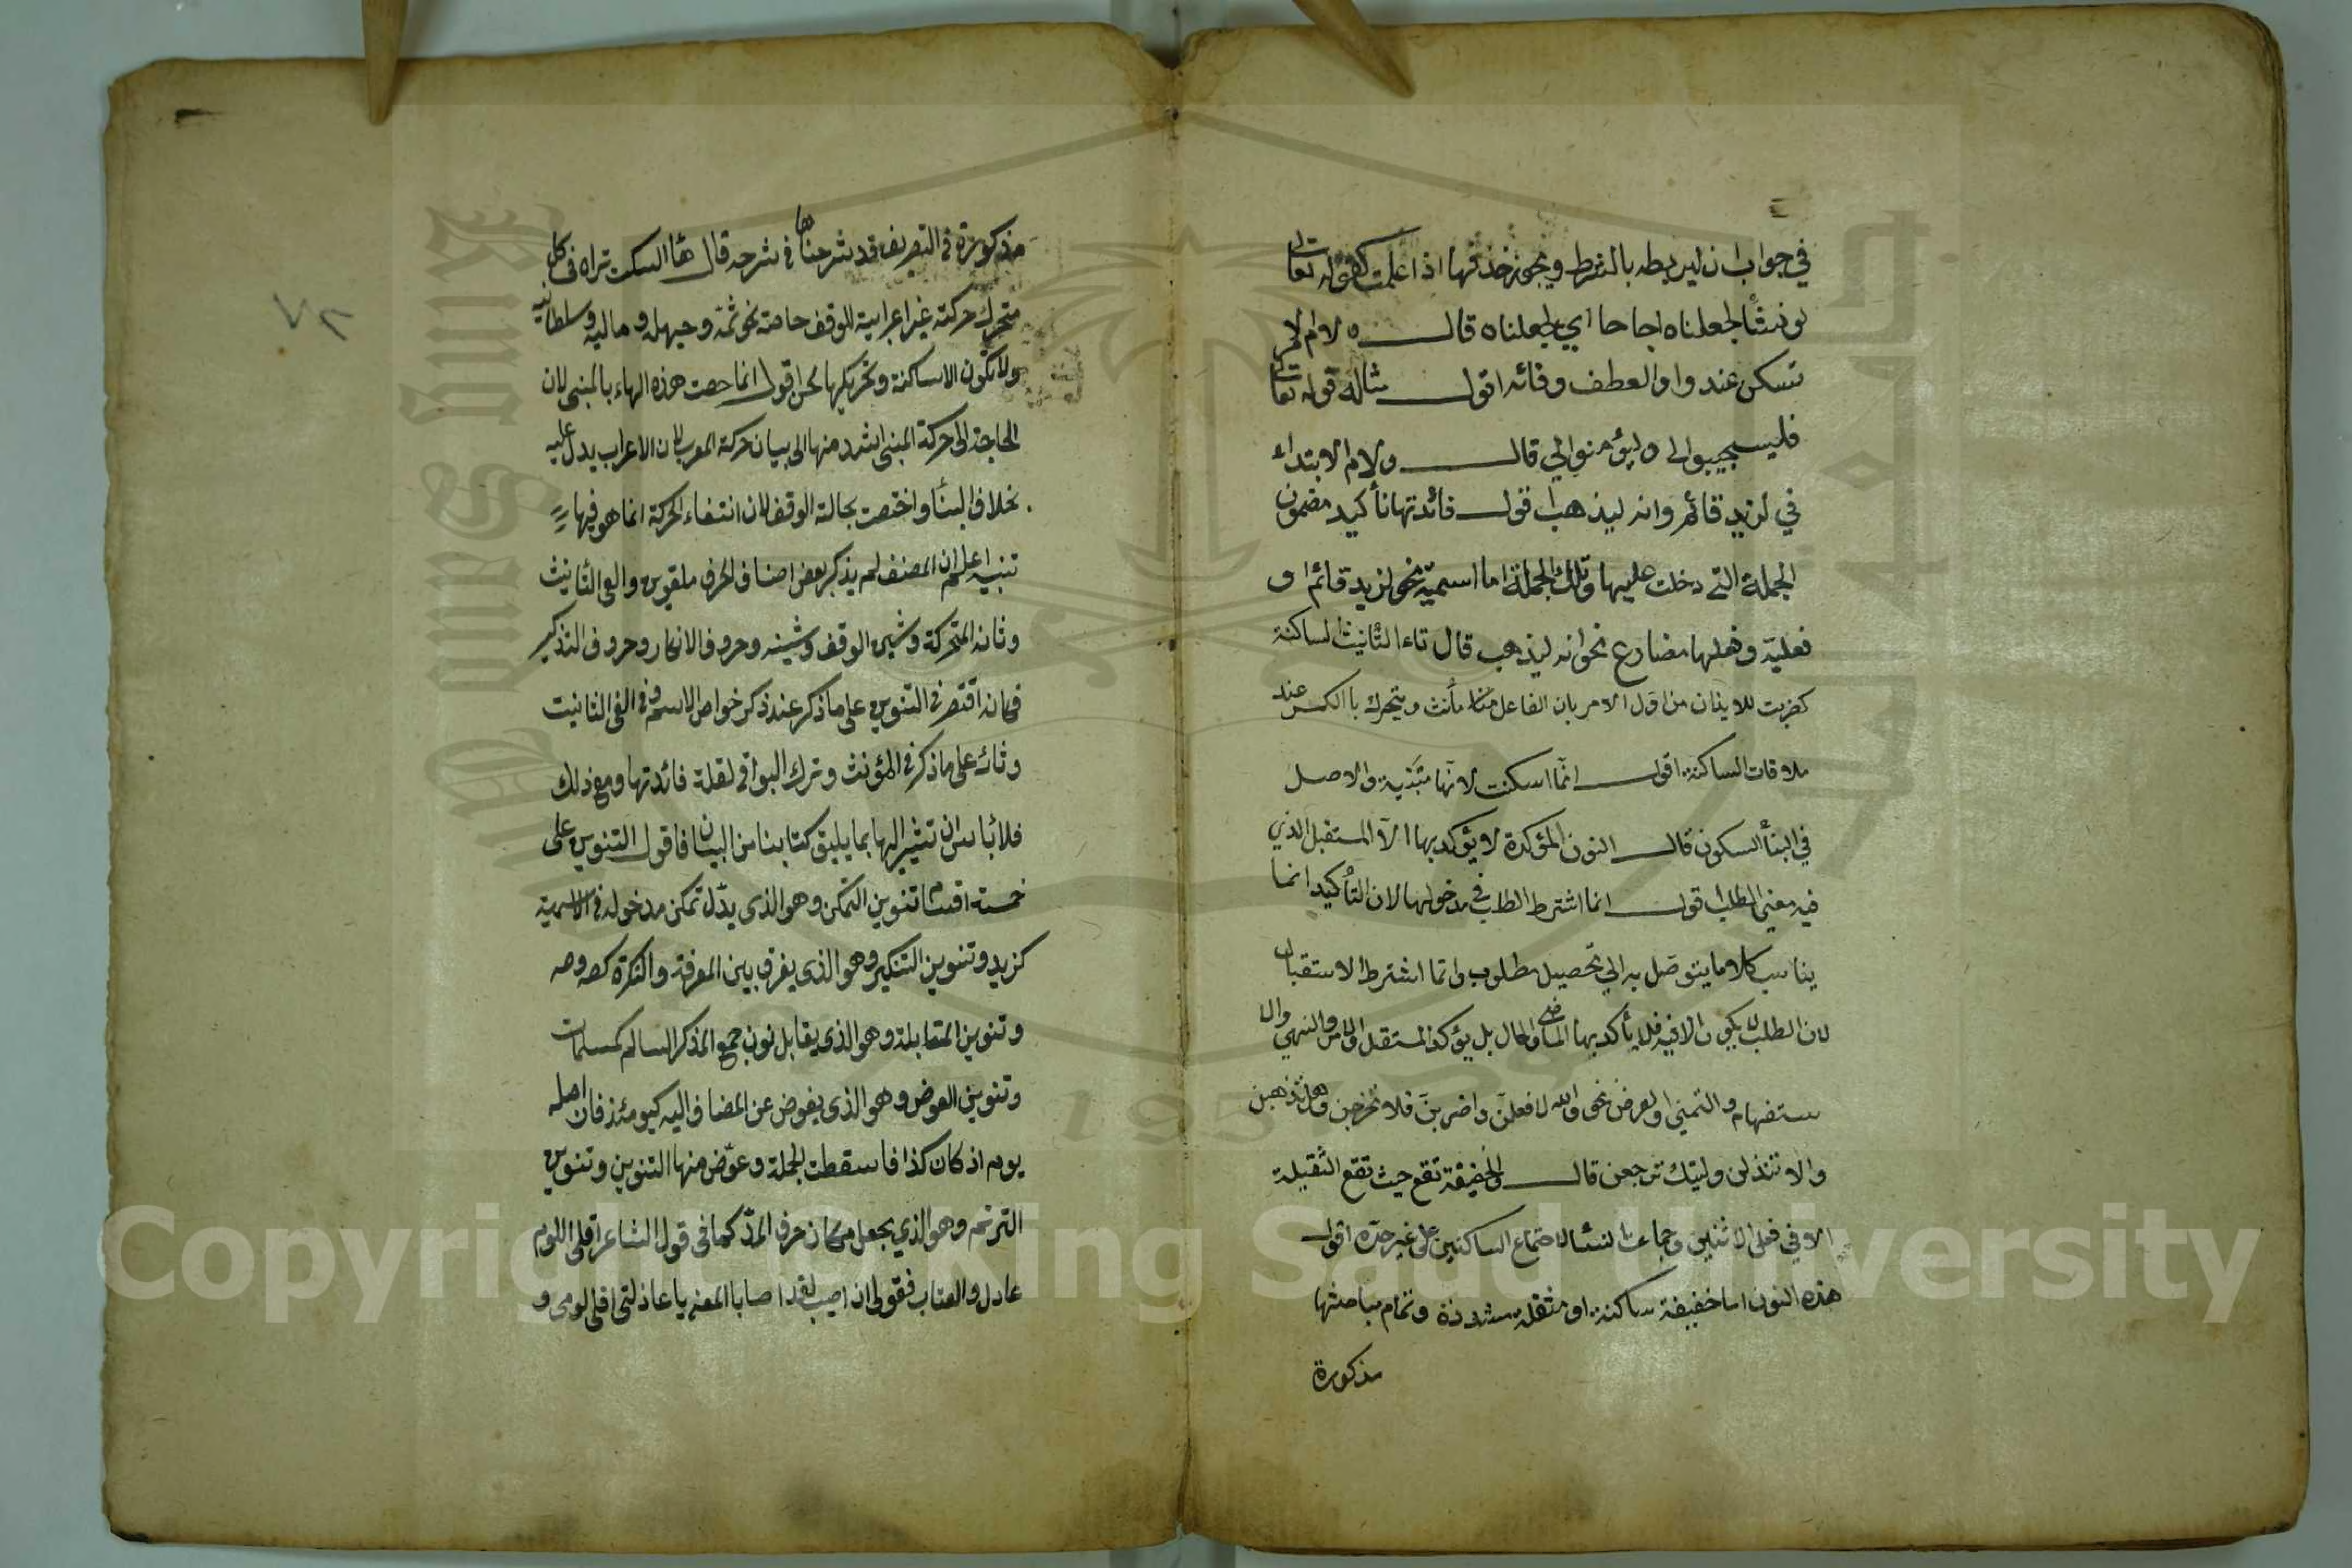 في جواب ان ليربطه بالشرط ويجوز حذفها اذا علمت كقوله تعالى
لو نشأ لجعلناه اجاجا اي لجعلناه قال ولام الامر
تسكن عند واو العطف وفائه اقول مثاله قوله تعالى
فليستجيبوا لي وليؤمنوا لي قال ولام الابتداء
في لزيد قائم وانه ليذهب اقول فائدتها تأكيد مضمون
الجملة التي دخلت عليها وتلك الجملة اما اسمية نحو لزيد قائم او
فعلية وفعلها مضارع نحو انه ليذهب قال تاء التأنيث الساكنة
كضربت للايذان من اول الامر بان الفاعل مؤنث ويتحرك بالكسر عند
ملاقات الساكنة اقول انما اسكنت لانها مبنية والاصل
في البنأ السكون قال النون المؤكدة لا يؤكد بها الا المستقبل الذي
فيه معنى الطلب اقول انما اشترط الطلب في مدخولها لان التأكيد انما
يناسب كلاما يتوصل به الي تحصيل مطلوب وانما اشترط الاستقبال
لان الطلب لا يكون الا فيه فلا يأكد بها الماضي والحال بل يؤكد المستقبل والامر والنهي والا
ستفهام والتمني والعرض نحو والله لافعلن واضربن فلا تخرجن وهل تذهبن
والا تنزلن وليتك ترجعن قال والخفيفة تقع حيث تقع الثقيلة
الا في فعلى الاثنين وجماعة النساء لاجتماع الساكنين على غير حده اقول
هذه النون اما خفيفة ساكنة او مثقلة مشددة وتمام مباحثها
مذكورة
مذكورة في التصريف قد شرحناها في شرحه قال هاء السكت تزاد في كل
متحرك حركته غير اعرابية للوقف خاصة نحو ثمه وحيهله وماليه وسلطانيه
ولا تكون الا ساكنة وتحريكها لحن اقول انما خصت هذه الهاء بالمبنى لان
الحاجة الى حركة المبنى اشد منها الى بيان حركة المعرب لان الاعراب يدل عليه
بخلاف البنأ واختصت بحالة الوقف لان انتفاء الحركة انما هو فيها
تنبيه اعلم ان المصنف لم يذكر بعض اصناف الحرف كالتنوين والفي التأنيث
وتائه المتحركة وشين الوقف وسينه وحروف الانكار وحروف التذكير
فكانه اقتصر في التنوين على ما ذكر عند ذكر خواص الاسم وفي الفي التانيث
وتائه على ما ذكر في المؤنث وترك البواقي لقلة فائدتها ومع ذلك
فلا بأس ان نشير اليها بما يليق كتابنا من البيان فاقول التنوين على
خمسة اقسام تنوين التمكن وهو الذي يدل تمكن مدخوله في الاسمية
كزيد وتنوين التنكير وهو الذي يفرق بين المعرفة والنكرة كصه وصه
وتنوين المقابلة وهو الذي يقابل نون جمع المذكر السالم كمسلمات
وتنوين العوض وهو الذي يعوض عن المضاف اليه كيومئذ فان اصله
يوم اذ كان كذا فاسقطت الجملة وعوض منها التنوين وتنوين
الترنم وهو الذي يجعل مكان حرف المد كما في قول الشاعر اقلي اللوم
عاذل والعتاب فقولي ان اصبت لقد اصابا المعنى يا عاذلتي اقلي لومي و
٧٢
Copyright © King Saud University
1957